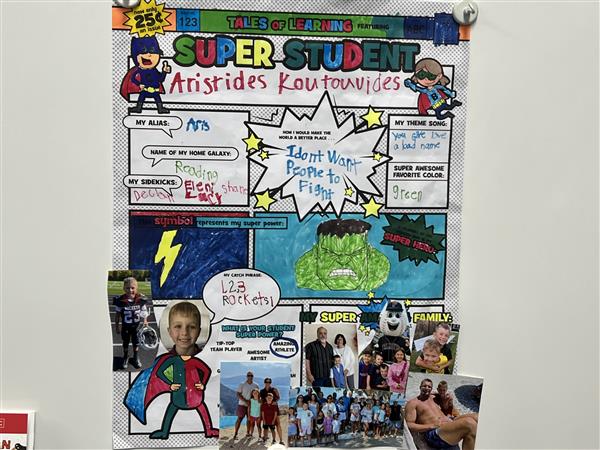 now only
25¢
an issue
123
TALES OF LEARNING FEATURING
SUPER STUDENT
Aristides Koutouvides
MY ALIAS: Aris
NAME OF MY HOME GALAXY:
Reading
MY SIDEKICKS:
HOW I WOULD MAKE THE
WORLD A BETTER PLACE . . .
I dont Want
People to
Fight
MY THEME SONG:
you give love
a bad name
SUPER AWESOME
FAVORITE COLOR:
green
symbol represents my super power:
SUPER HERO:
MY CATCH PHRASE:
1,2,3
Rockets!
WHAT IS YOUR STUDENT
SUPER POWER?
TIP-TOP
TEAM PLAYER
AWESOME
ARTIST
AMAZING
ATHLETE
MY SUPER FAMILY: